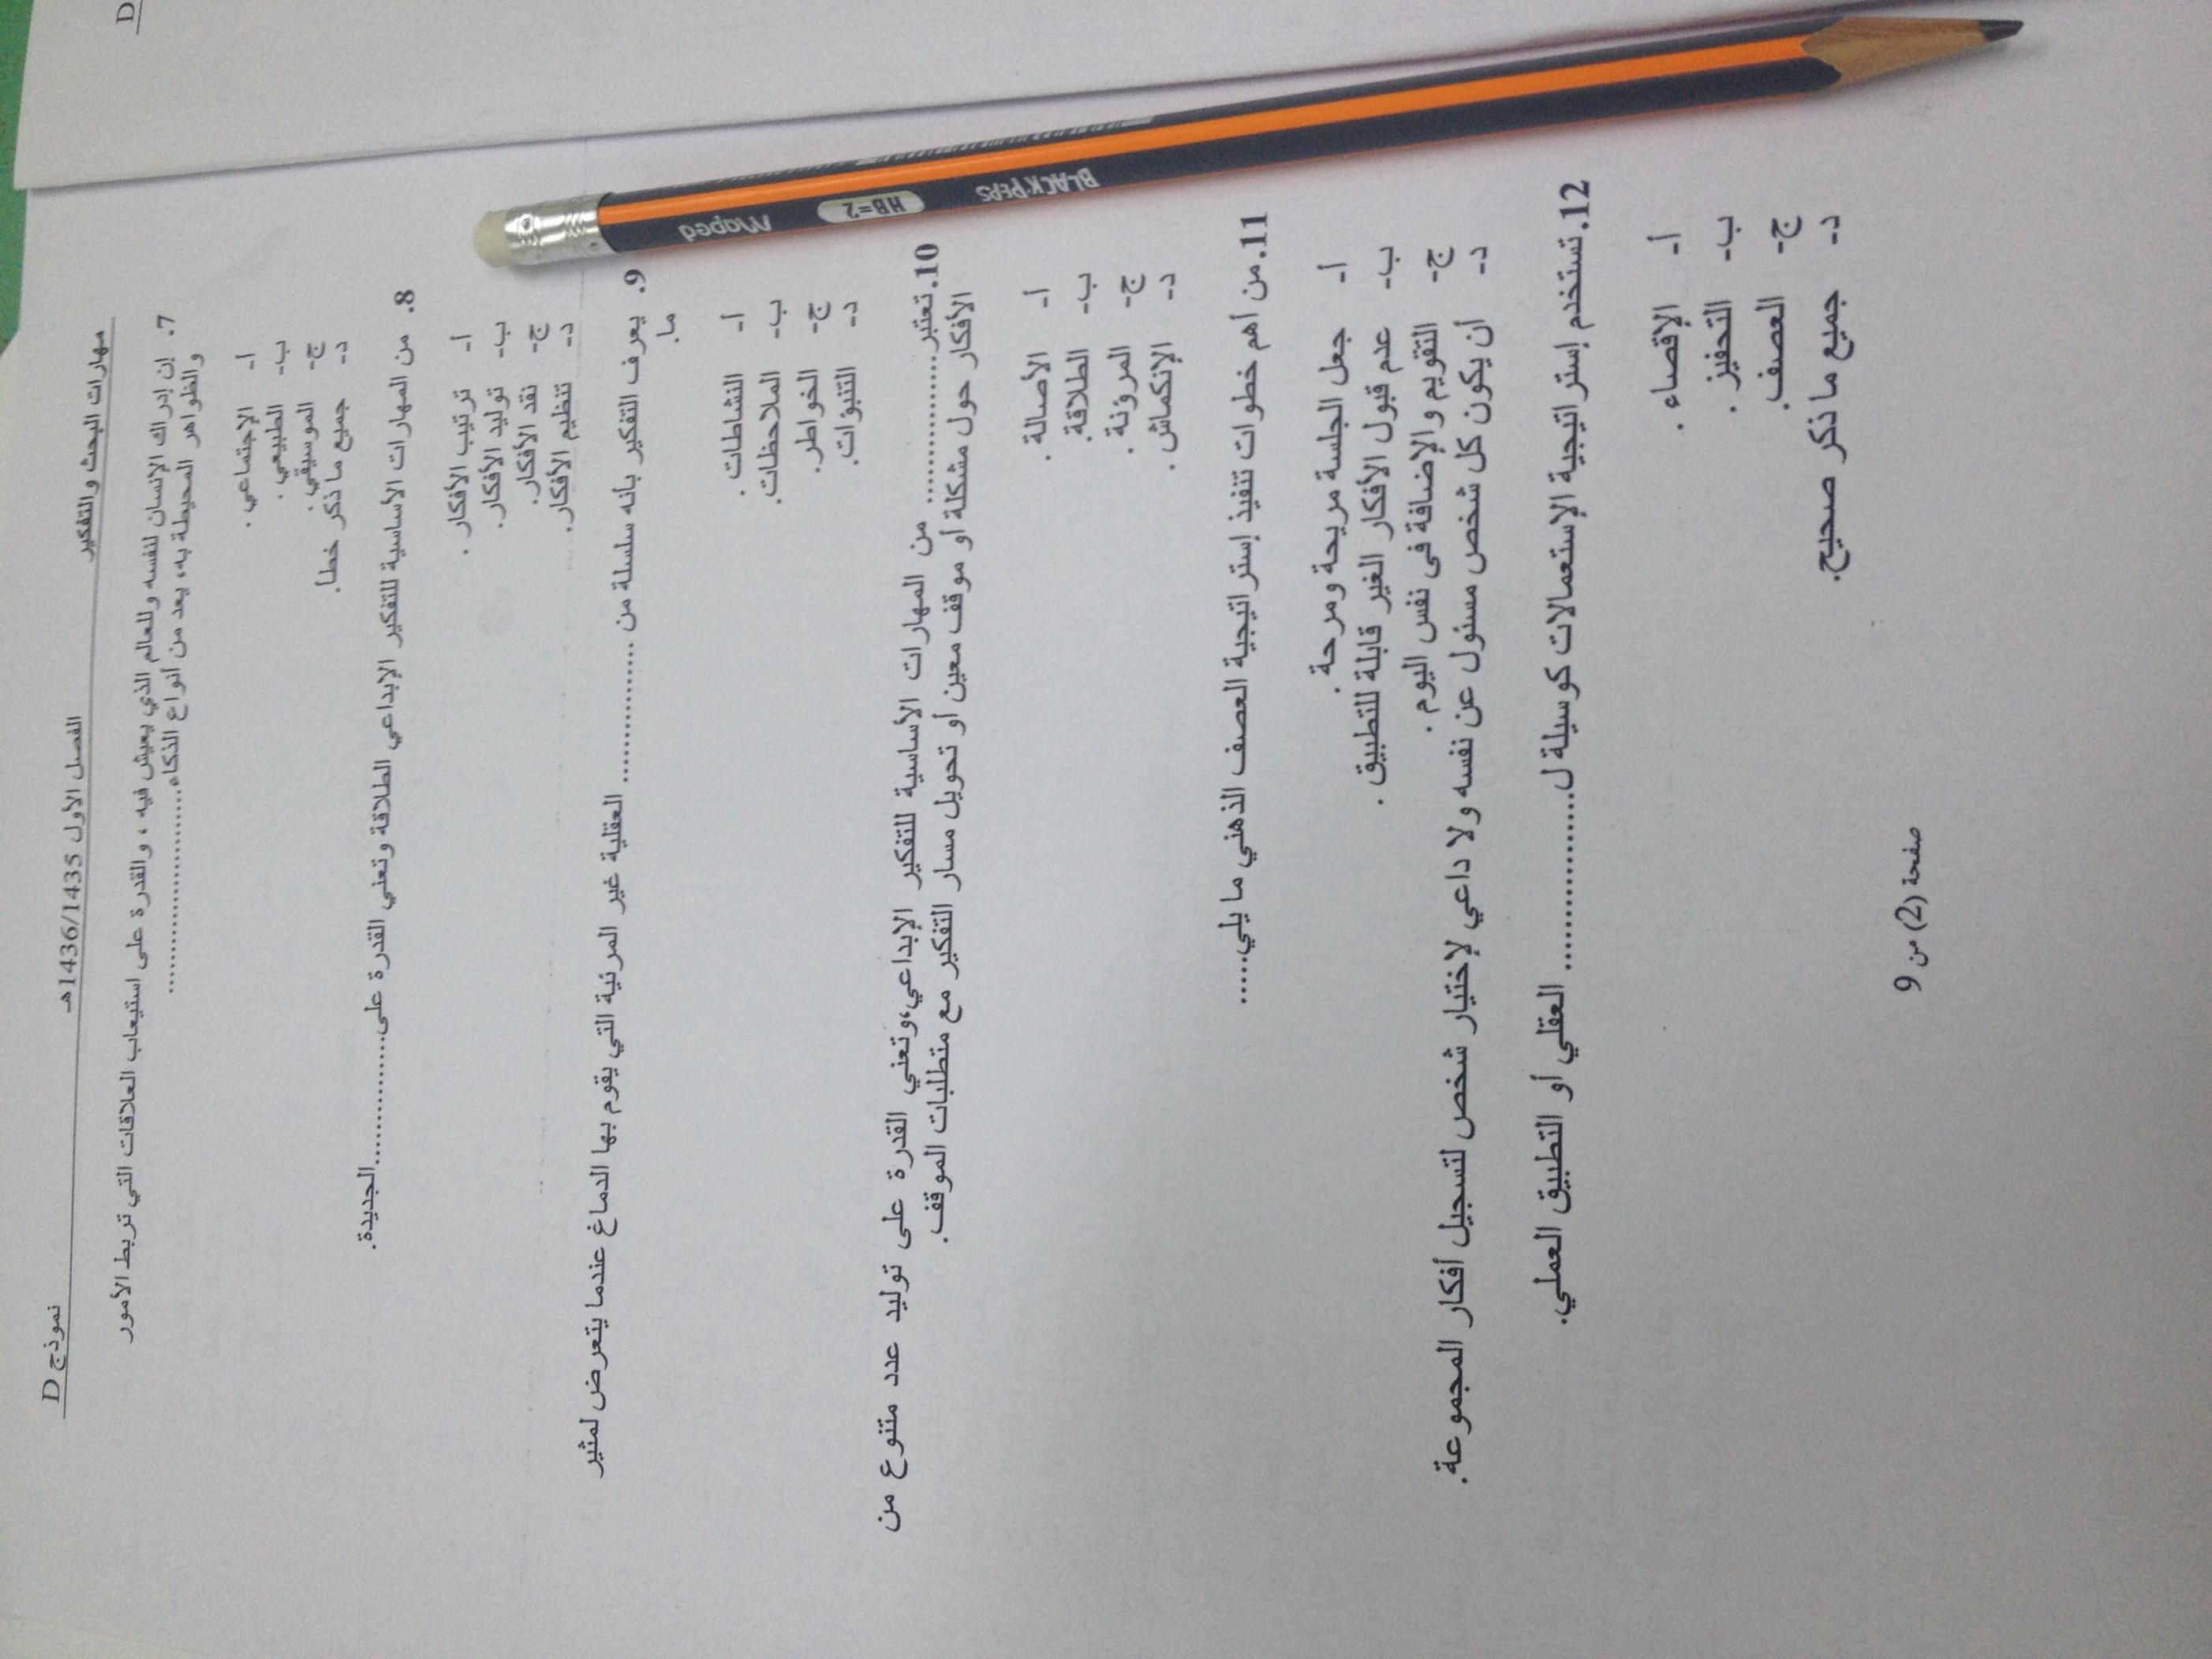 D
مهارات البحث والتفكير الفصل الأول 1436/1435هـ نموذج D
7. إن إدراك الإنسان لنفسه وللعالم الذي يعيش فيه ، والقدرة على استيعاب العلاقات التي تربط الأمور
والظواهر المحيطة به، يعد من أنواع الذكاء..........................
أ- الإجتماعي .
ب- الطبيعي .
ج- الموسيقي .
د- جميع ما ذكر خطأ.
8. من المهارات الأساسية للتفكير الإبداعي الطلاقة وتعني القدرة على................الجديدة.
أ- ترتيب الأفكار .
ب- توليد الأفكار.
ج- نقد الأفكار.
د- تنظيم الأفكار.
9. يعرف التفكير بأنه سلسلة من ................ العقلية غير المرئية التي يقوم بها الدماغ عندما يتعرض لمثير
ما.
أ- النشاطات .
ب- الملاحظات.
ج- الخواطر.
د- التنبؤات.
10. تعتبر................ من المهارات الأساسية للتفكير الإبداعي،وتعني القدرة على توليد عدد متنوع من
الأفكار حول مشكلة أو موقف معين أو تحويل مسار التفكير مع متطلبات الموقف.
أ- الأصالة .
ب- الطلاقة.
ج- المرونة .
د- الإنكماش .
11. من أهم خطوات تنفيذ إستراتيجية العصف الذهني ما يلي.....
أ- جعل الجلسة مريحة ومرحة .
ب- عدم قبول الأفكار الغير قابلة للتطبيق .
ج- التقويم والإضافة في نفس اليوم .
د- أن يكون كل شخص مسئول عن نفسه ولا داعي لإختيار شخص لتسجيل أفكار المجموعة.
12. تستخدم إستراتيجية الإستعمالات كوسيلة ل.................... العقلي أو التطبيق العملي.
أ- الإقصاء .
ب- التحفيز .
ج- العصف.
د- جميع ما ذكر صحيح.
صفحة (2) من 9
Maped HB=2 BLACK'PEPS